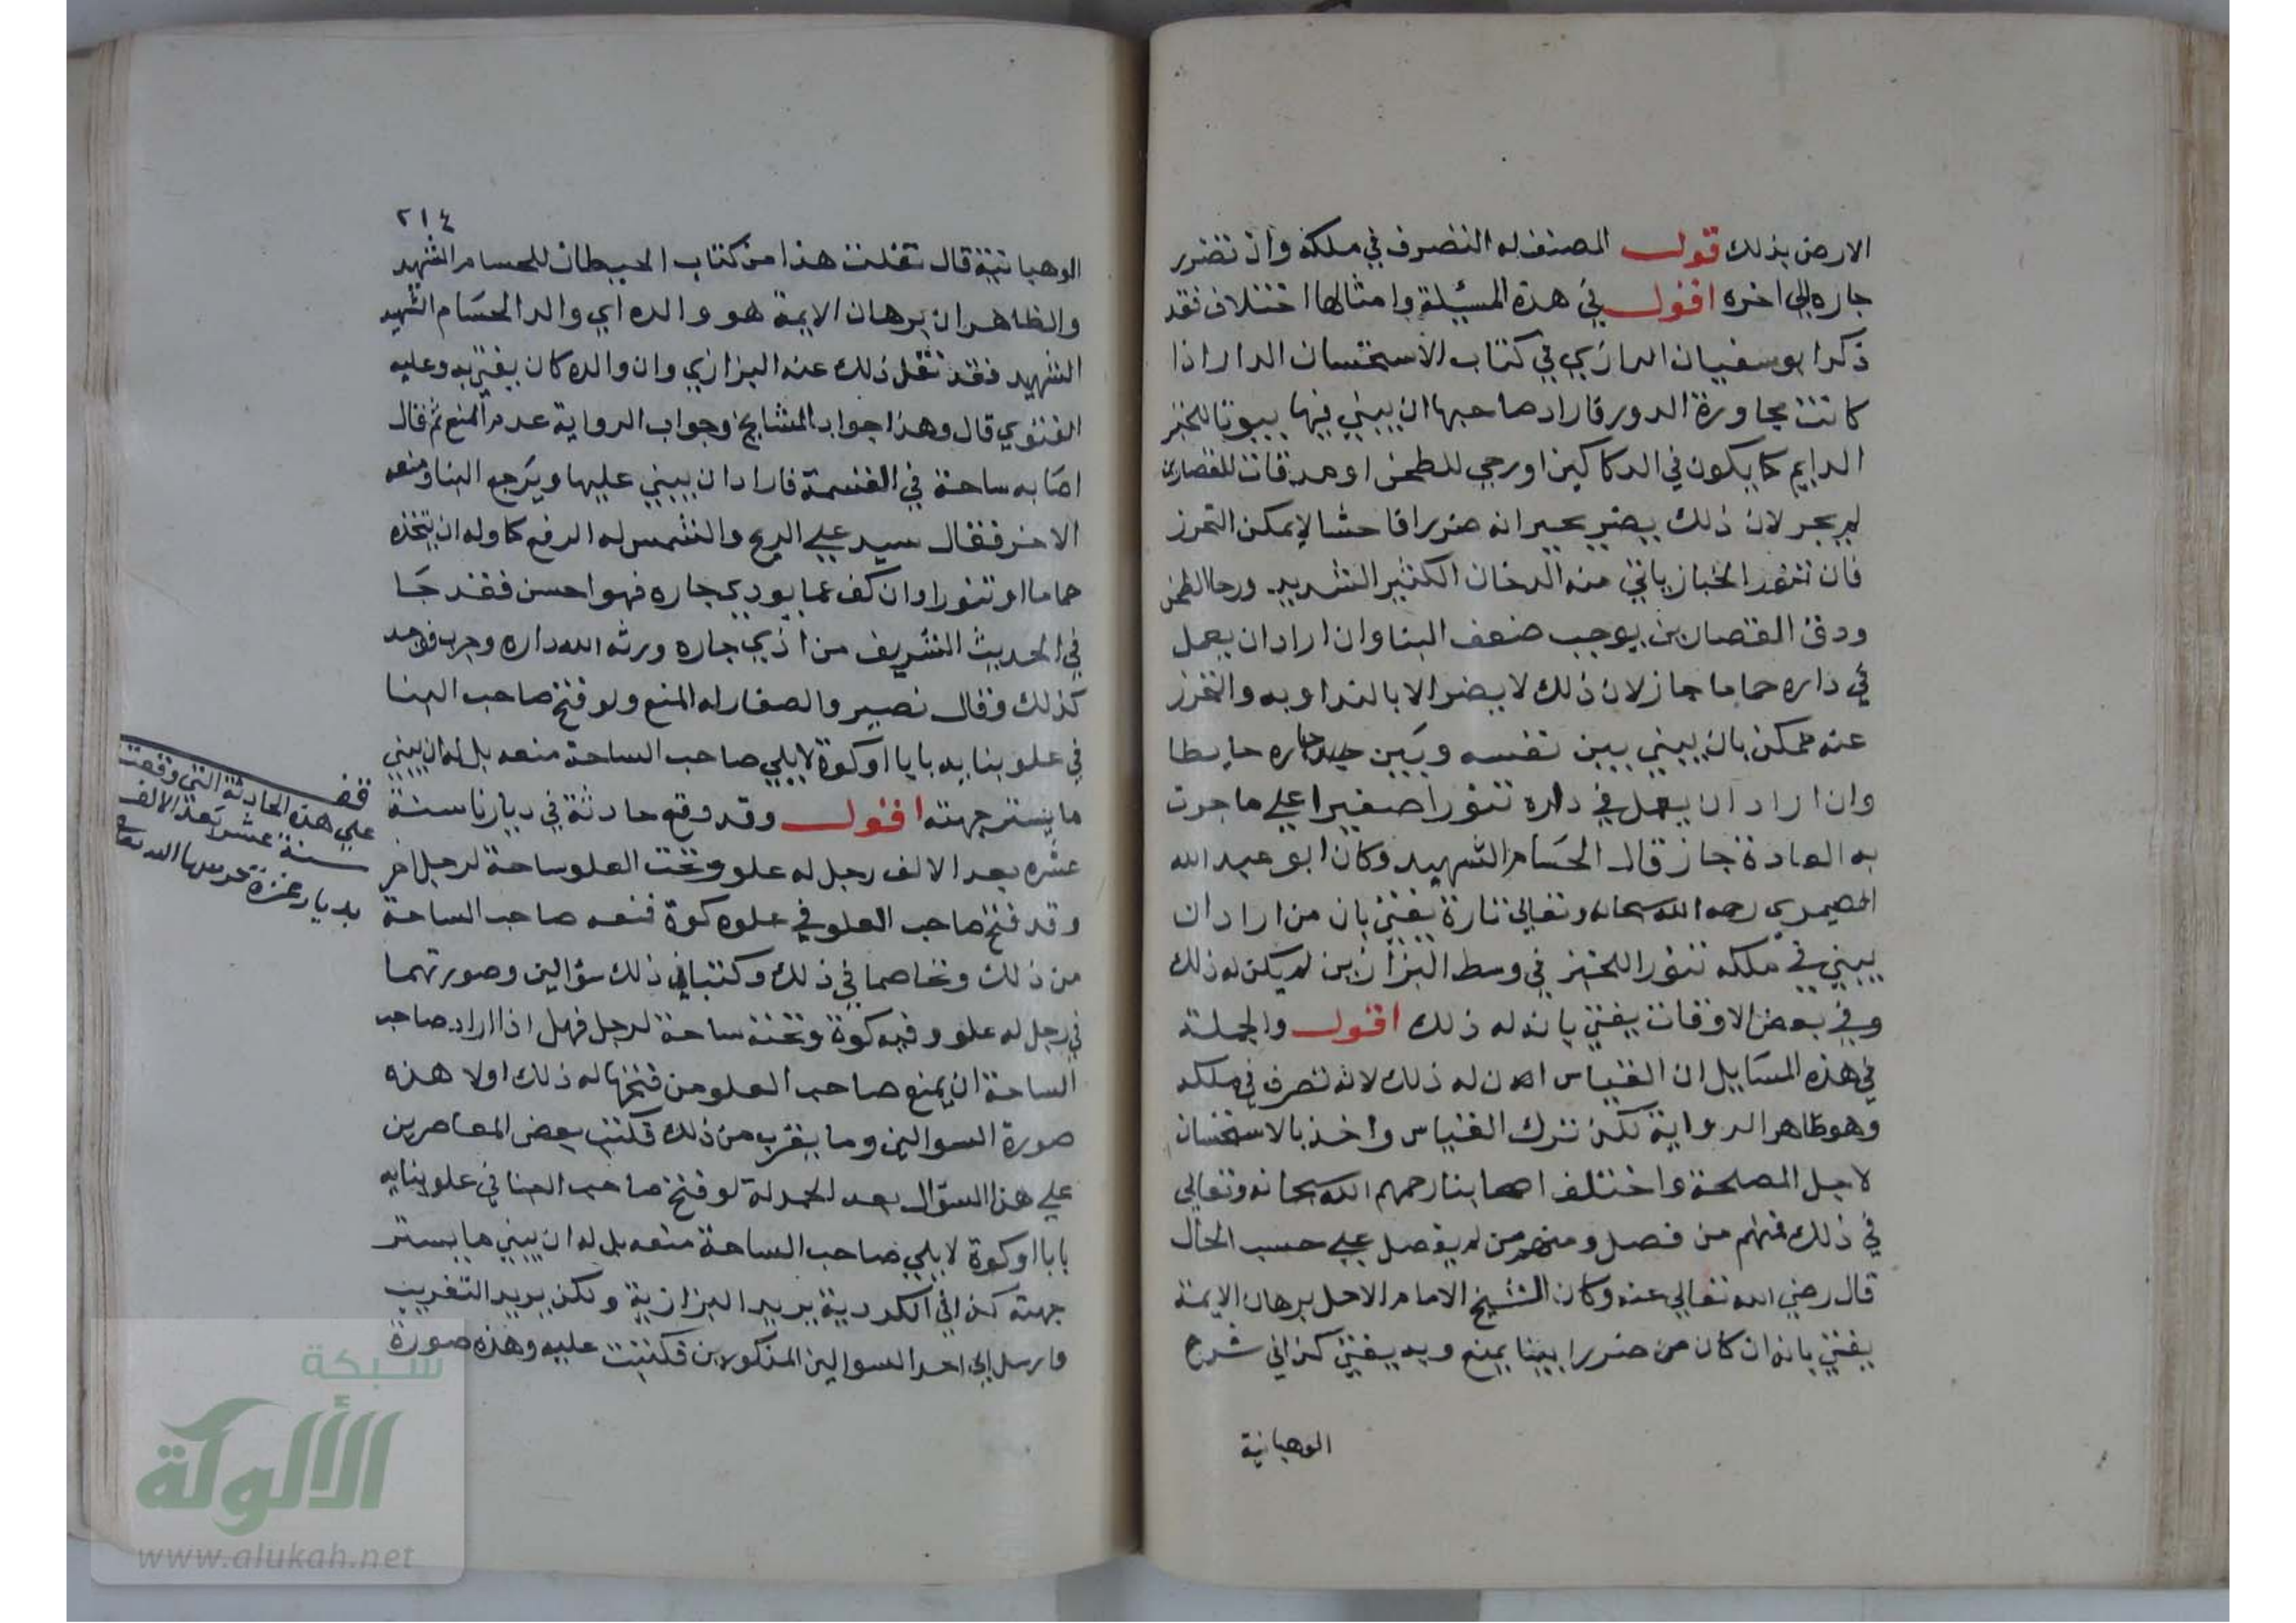 الارض بذلك قول المصنف له التصرف في ملكه وان تضرر
جاره الي اخره اقول في هذه المسئلة وامثالها اختلاف فقد
ذكر ابو سفيان الرازي في كتاب الاستحسان الدار اذا
كانت مجاورة الدور فاراد صاحبها ان يبني فيها بيوتا للخبز
الدايم كما يكون في الدكاكين او رحي للطحن او مدقات للقصارين
لم يجز لان ذلك يضر بجيرانه ضررا فاحشا لا يمكن التحرز
فان تنور الخباز ياتي منه الدخان الكثير الشديد ورحا الطحن
ودق القصارين يوجب ضعف البنا وان اراد ان يعمل
في داره حماما جاز لان ذلك لا يضر الا بالنداوة به والتحرز
عنه ممكن بان يبني بين نفسه وبين جاره حايطا
وان اراد ان يعمل في داره تنورا صغيرا علي ما جرت
به العادة جاز قال الحسام الشهيد وكان ابو عبد الله
الصيمري رحمه الله سبحانه وتعالي تارة يفتي بان من اراد ان
يبني في ملكه تنورا للخبز في وسط البزازين لم يكن له ذلك
وفي بعض الاوقات يفتي بانه له ذلك اقول والجملة
في هذه المسايل ان القياس ان له ذلك لانه تصرف في ملكه
وهو ظاهر الرواية لكن ترك القياس واخذ بالاستحسان
لاجل المصلحة واختلف اصحابنا رحمهم الله سبحانه وتعالي
في ذلك فمنهم من فصل ومنهم من لم يفصل علي حسب الحال
قال رضي الله تعالي عنه وكان الشيخ الامام الاجل برهان الايمة
يفتي بانه ان كان من ضررا بينا يمنع وبه يفتي كذا في شرح
الوهبانية
٢١٤
الوهبانية قال نقلت هذا من كتاب الحيطان للحسام الشهيد
والظاهر ان برهان الايمة هو والده اي والد الحسام الشهيد
الشهيد فقد نقل ذلك عنه البزازي وان والده كان يفتي به وعليه
الفتوي قال وهذا جواب المشايخ وجواب الرواية عدم المنع ثم قال
اصابه ساحة في القسمة فاراد ان يبني عليها ويرجع البنا ومنعه
الاخر فقال سيد علي الريح والشمس له الرفع كما وله ان يتخذه
حماما او تنورا وان كف عما يوذي جاره فهو احسن فقد جا
في الحديث الشريف من اذي جاره ورثه الله داره وجرب فوجد
كذلك وقال نصير والصفار له المنع ولو فتح صاحب البنا
في علو بنايه بابا او كوة لا يلي صاحب الساحة منعه بل له ان يبني
ما يستر جهته اقول وقد وقع حادثة في ديارنا سنة
عشره بعد الالف رجل له علو وتحت العلو ساحة لرجل اخر
وقد فتح صاحب العلو في علوه كوة فمنعه صاحب الساحة
من ذلك وتخاصما في ذلك وكتبا في ذلك سؤالين وصورتهما
في رجل له علو وفيه كوة وتحته ساحة لرجل فهل اذا اراد صاحب
الساحة ان يمنع صاحب العلو من فتحها له ذلك اولا هذه
صورة السوالين وما يقرب من ذلك فكتب بعض المعاصرين
علي هذا السؤال بعد الحمدلة لو فتح صاحب البنا في علو بنايه
بابا او كوة لا يلي صاحب الساحة منعه بل له ان يبني ما يستر
جهته كذا في الكردية يريد البزازية ولكن يريد التغريب
وارسل الي احد السوالين المذكورين فكتبت عليه وهذه صورة
قف
علي هذه الحادثة التي وقعت
سنة عشر بعد الالف
بديار غزة حرسها الله تعالى
شبكة
الألوكة
www.alukah.net